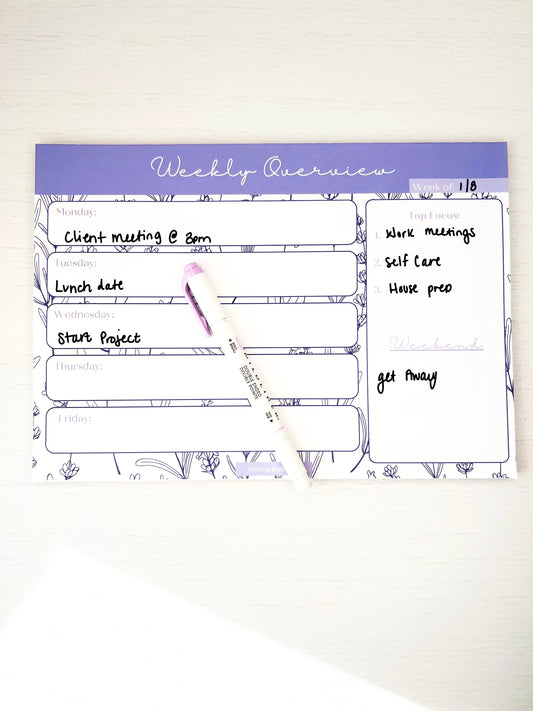 Weekly Overview
Week of: 1/8
Monday:
Client meeting @ 3pm
Tuesday:
Lunch date
Wednesday:
Start Project
Thursday:
Friday:
Top Focus:
1. Work meetings
2. Self Care
3. House prep
Weekend
get Away
Thriving